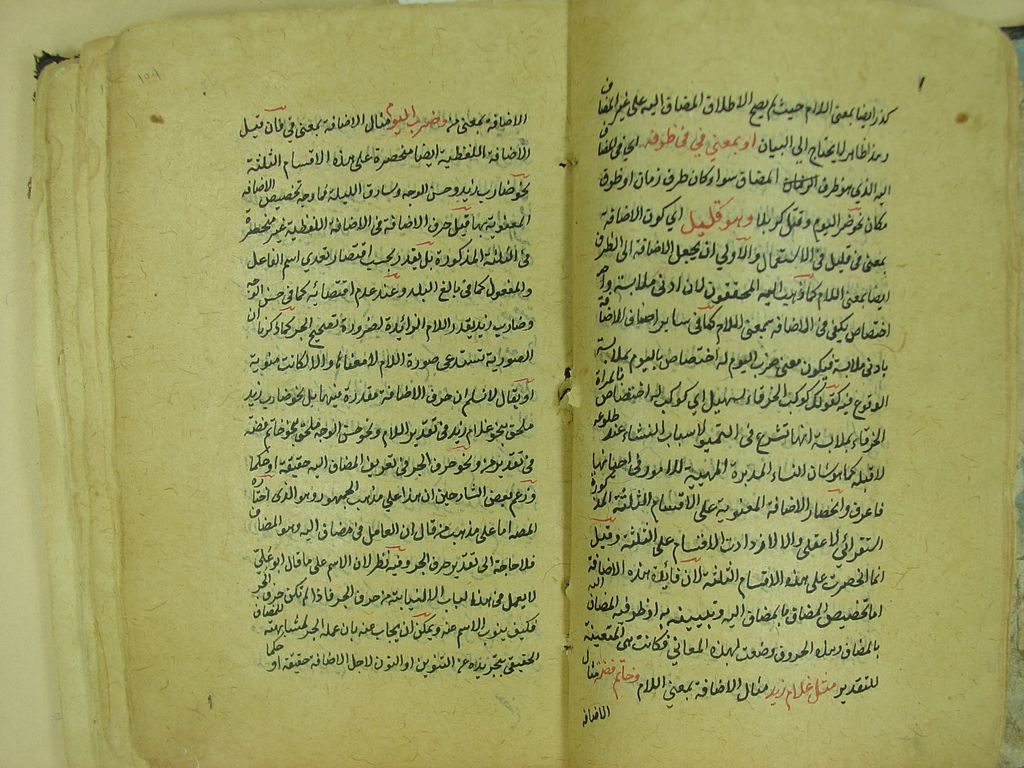 ايضا بمعنى اللام حيث لم يصح الاطلاق المضاف اليه على غير المضاف
لا يحتاج الى البيان او بمعنى في في ظرفه اي في المضاف
اليه الذي هو ظرف المضاف سواء كان ظرف زمان او ظرف
مكان نحو ضرب اليوم وقتل كربلا وهو قليل اي كون الاضافة
بمعنى في قليل في الاستعمال والاولى ان يجعل الاضافة الى الظرف
ايضا بمعنى اللام كما ذهب اليه المحققون لان ادنى ملابسة و
اختصاص يكفي في الاضافة بمعنى اللام كما في ساير اصناف الاضافة
بادنى ملابسة فيكون معنى ضرب اليوم له اختصاص باليوم بملابسة
الوقوع فيه كقولك كوكب الخرقاء لسهيل اي كوكب له اختصاص بالمرأة
الخرقاء بملابسة انها تشرع في التهيؤ لاسباب الشتاء عند طلوعه
لا قبله كما هو شان النساء المدبرة المهيئة للامور في احيانها
فاعرف وانحصار الاضافة المعنوية على الاقسام الثلثة المذكورة
استقرائي لا عقلي والا لازدادت الاقسام على الثلثة وقيل
انما انحصرت على هذه الاقسام الثلثة لان فائدة هذه الاضافة
اما تخصيص المضاف بالمضاف اليه وتبيينه به او ظرفية المضاف اليه
بالمضاف وهذه الحروف وضعت لهذه المعاني فكانت هي المتعينة
للتقدير مثل غلام زيد مثال الاضافة بمعنى اللام وخاتم فضة مثال
الاضافة
١٥٩
الاضافة بمعنى من وضرب اليوم مثال الاضافة بمعنى في فان قيل
الاضافة اللفظية ايضا منحصرة على هذه الاقسام الثلثة
نحو ضارب زيد وحسن الوجه وسارق الليلة فما وجه تخصيص الاضافة
المعنوية بها قيل حرف الاضافة في الاضافة اللفظية غير منحصرة
في الثلثة المذكورة بل يقدر بحسب اقتضاء تعدي اسم الفاعل
والمفعول كما في بالغ البلد وعند عدم اقتضائه كما في حسن الوجه
وضارب زيد يقدر اللام الزائدة لضرورة تصحيح الجر كما ذكرنا ان
الصورية تستدعي صورة اللام لا معناها والا لكانت معنوية
او يقال لا نسلم ان حرف الاضافة مقدرة فيها بل نحو ضارب زيد
ملحق بنحو غلام زيد في تقدير اللام ونحو حسن الوجه ملحق بنحو خاتم فضة
في تقدير من ونحو حرف الجر في تعريف المضاف اليه حقيقة او حكما
وزعم بعض الشارحين ان هذا على مذهب الجمهور وهو الذي اختاره
المصنف اما على مذهب من قال ان العامل في مضاف اليه هو المضاف
فلا حاجة الى تقدير حرف الجر وفيه نظر لان الاسم على ما قال ابو علي
لا يعمل في هذا الباب الا لنيابته من حرف الجر فاذا لم تكن حرف الجر
فكيف ينوب الاسم عنه ويمكن ان يجاب عنه بان عمل الجر لمشابهته للمضاف
الحقيقي بتجريده عن التنوين او النون لاجل الاضافة حقيقة او حكما